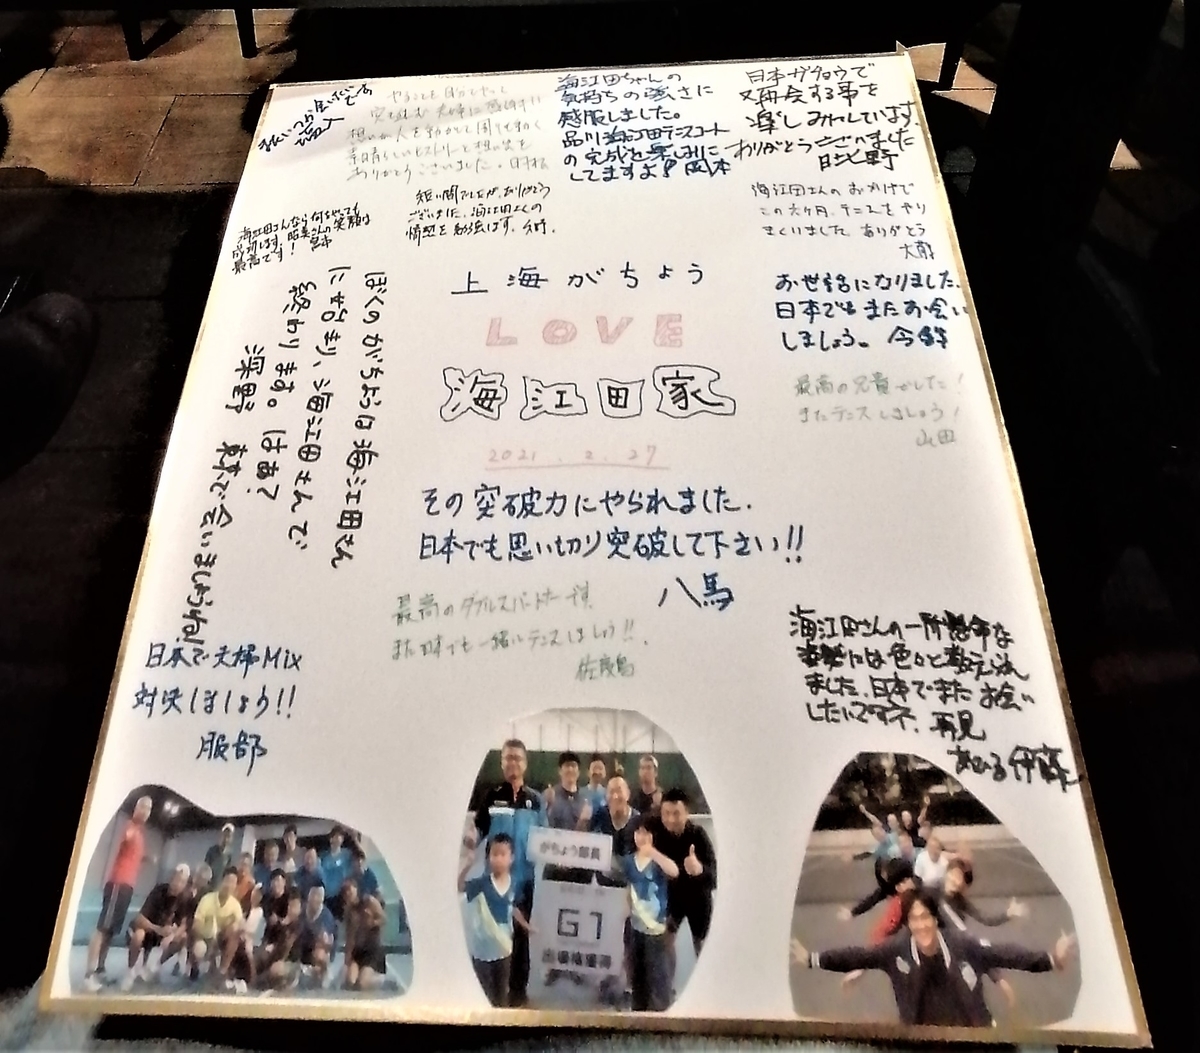 やることを
突き進む夫婦に感謝
想いが人を動かして周りも動く
素晴らしいヒストリーと想い出を
ありがとうございました。
海江田ちゃんの
気持ちの強さに
感服しました。
品川海江田テニスコート
の完成を楽しみに
してますよ♂岡本
日本ガチョウで
又再会する事を
楽しみにしています。
ありがとうございました
日比野
短い間でしたが、ありがとう
ございました。海江田さんの
情熱を勉強はす。
海江田さんのおかげで
この六ヶ月、テニスをやり
まくりました ありがとう
海江田さんなら何をやっても
成功します。昭美さんの笑顔は
最高です!宮本
上海がちょう
LOVE
海江田家
2021.2.27
お世話になりました。
日本でもまたお会い
しましょう。
最高の兄貴でした!
またテニスしましょう!
山田
ぼくのがちょうは海江田さん
に始まり、海江田さんで
終わります。はあ?
深野 東京で会いましょうね!
その突破力にやられました.
日本でも思い切り突破して下さい!!
八馬
最高のダブルスパートナー
また日本でも一緒にテニスしましょう!!
佐多島
日本で夫婦Mix
対決しましょう!!
服部
海江田さんの一所懸命な
姿勢には色々と教えられ
ました。日本でまたお会い
したいですネ、再見
あひる伊藤
がちょう部長
G1
出場権獲得